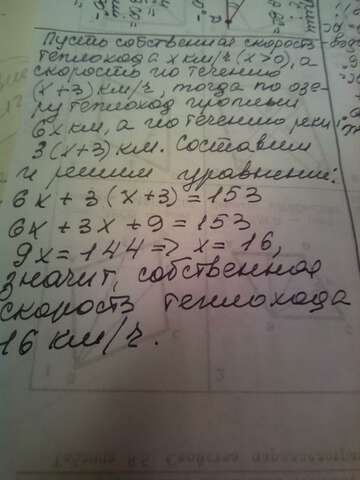 Пусть собственная скорость
теплохода x км/ч (x>0), а
скорость по течению
(x+3) км/ч, тогда по озе-
ру теплоход проплыл
6x км, а по течению реки
3(x+3) км. Составим
и решим уравнение:
6x + 3(x+3) = 153
6x + 3x + 9 = 153
9x = 144 => x = 16,
значит, собственная
скорость теплохода
16 км/ч.